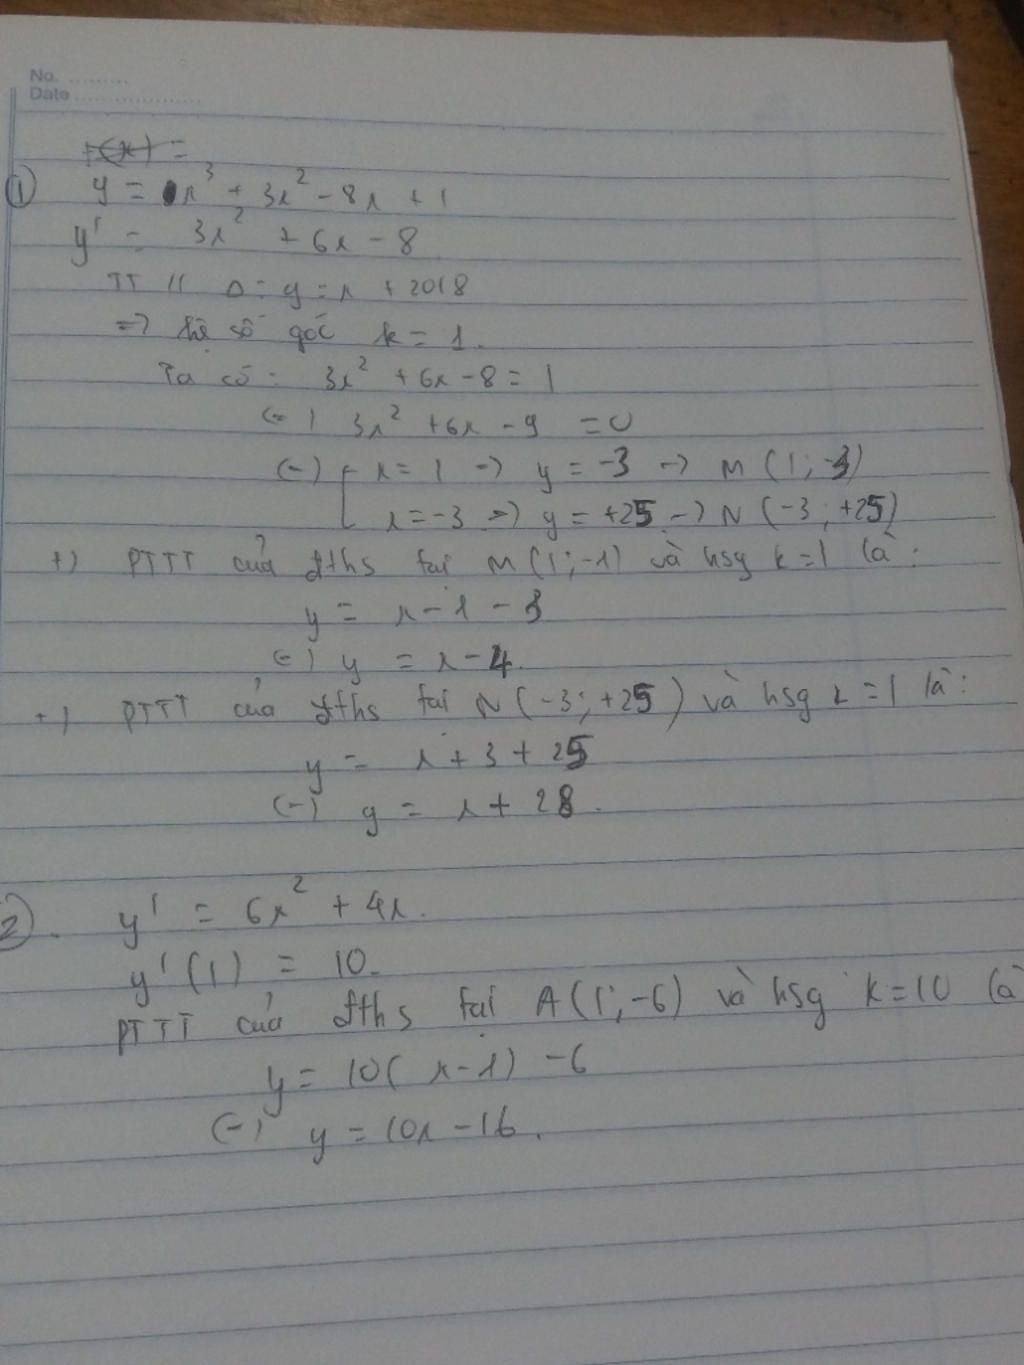 No. .........
Date ...................
f(x) =
① y = x³ + 3x² - 8x + 1
y' = 3x² + 6x - 8
TT // Δ: y = x + 2018
=> hệ số góc k = 1.
Ta có: 3x² + 6x - 8 = 1
(=) 3x² + 6x - 9 = 0
(=) [ x = 1 => y = -3 -> M (1; -3)
x = -3 => y = +25 -> N (-3; +25)
+) PTTT của đths tại M(1; -1) và hsg k = 1 là:
y = x - 1 - 3
(=) y = x - 4.
+) PTTT của đths tại N(-3; +25) và hsg k = 1 là:
y = x + 3 + 25
(=) y = x + 28.
②. y' = 6x² + 4x.
y'(1) = 10.
PTTT của đths tại A(1; -6) và hsg k = 10 là
y = 10(x - 1) - 6
(=) y = 10x - 16.